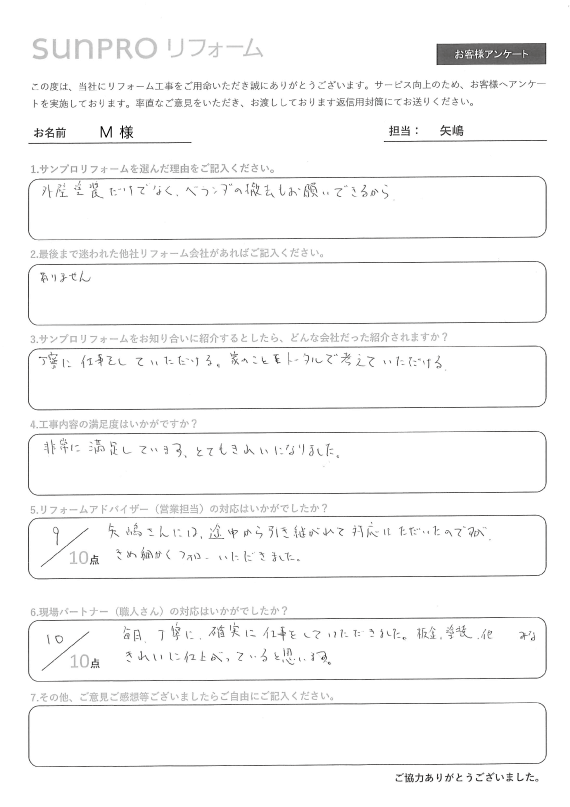 sunPRO リフォーム
お客様アンケート
この度は、当社にリフォーム工事をご用命いただき誠にありがとうございます。サービス向上のため、お客様へアンケー
トを実施しております。率直なご意見をいただき、お渡ししております返信用封筒にてお送りください。
お名前 M 様 担当： 矢嶋
1.サンプロリフォームを選んだ理由をご記入ください。
外壁塗装だけでなく、ベランダの撤去もお願いできるから
2.最後まで迷われた他社リフォーム会社があればご記入ください。
ありません
3.サンプロリフォームをお知り合いに紹介するとしたら、どんな会社だった紹介されますか？
丁寧に仕事をしていただける。家のことをトータルで考えていただける
4.工事内容の満足度はいかがですか？
非常に満足しています、とてもきれいになりました。
5.リフォームアドバイザー（営業担当）の対応はいかがでしたか？
9/10点
矢嶋さんには、途中から引き継がれて対応いただいたのですが、
きめ細かく いただきました。
6.現場パートナー（職人さん）の対応はいかがでしたか？
10/10点
毎日、丁寧に、確実に仕事をしていただきました。板金、塗装、他 みな
きれいに仕上がっていると思います。
7.その他、ご意見ご感想等ございましたらご自由にご記入ください。
ご協力ありがとうございました。